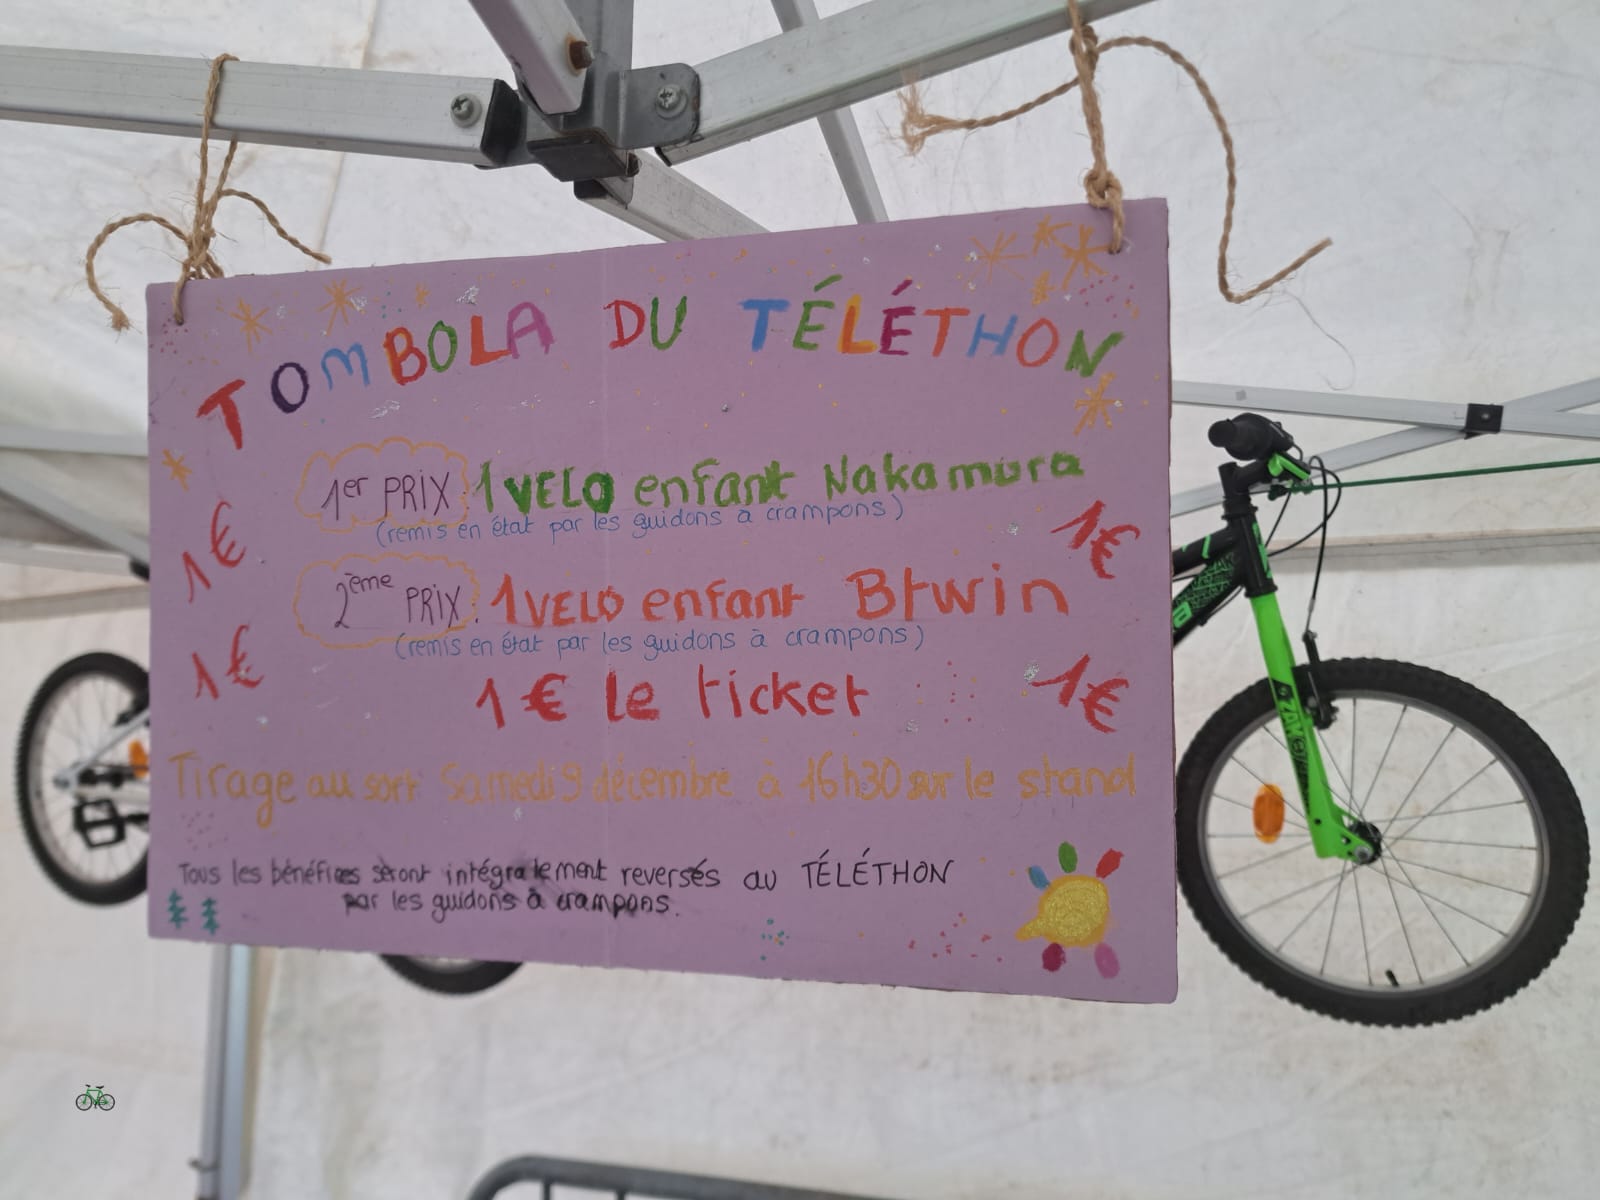 TOMBOLA DU TÉLÉTHON
1er PRIX: 1 VELO enfant Nakamura
(remis en état par les guidons à crampons)
1€
1€
2ème PRIX: 1 VELO enfant Btwin
(remis en état par les guidons à crampons)
1€
1€
1 € le ticket
Tirage au sort Samedi 9 décembre à 16h30 sur le stand
Tous les bénéfices seront intégralement reversés au TÉLÉTHON
par les guidons à crampons.